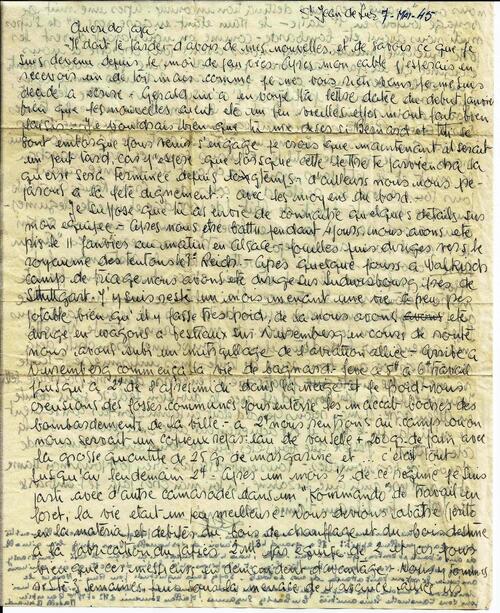 St Jean de Luz 7-MAI-45
Querido aja
Il doit te tarder d'avoir de mes nouvelles, et de savoir ce que je
suis devenu depuis le mois de Janvier. Après mon cable j'espérais en
recevoir un de toi mais comme je ne vois rien venir je me suis
décidé à écrire - Gérald m'a envoyé ta lettre datée du début Janvier
bien que les nouvelles aient été un peu vieilles elles m'ont fait bien
plaisir - Je voudrais bien que tu me dises si Bernard et
font entorse pour venir s'engager je crois que maintenant il serait
un peu tard, car j'espère que lorsque cette lettre te parviendra la
guerre sera terminée depuis longtemps - d'ailleurs nous nous pré-
parons à la fêter dignement avec les moyens du bord -
Je suppose que tu as envie de connaitre quelques détails sur
mon équipée - Après nous être battu pendant 4 jours nous avons été
pris le 11 Janvier au matin en Alsace - fouillés puis dirigés vers le
royaume des teutons le 3e Reich - Après quelques jours à Walkirch
camp de triage nous avons été dirigé sur Ludwigsburg près de
Stuttgart. J'y suis resté un mois menant une vie à peu près
potable bien qu'il y fasse très froid, de là nous avons été
dirigé en wagons à bestiaux sur Nuremberg en cours de route
nous avons subi un mitraillage de l'aviation alliée - Arrivé à
Nuremberg commença la vie de bagnard - levé à 5h à 6h travail
jusqu'à 2h de l'après midi dans la neige et le froid - nous
creusions des fosses communes pour enterrer les maccab boches des
bombardements de la ville - à 2h nous rentrions au camp où on
nous servait un copieux repas : eau de vaiselle + 200 gr de pain avec
la grosse quantité de 25 gr de margarine et !! c'était tout
jusqu'au lendemain 2h - Après un mois ½ de ce régime je suis
parti avec d'autre camarades dans un "Kommando" de travail en
foret, la vie était un peu meilleure. Nous devions abattre
et la et débiter du bois de chauffage et du bois destiné
à la fabrication du papier 2 m3 par équipe de 2 et par jour
ces messieurs en demandaient d'avantage - Nous y sommes
resté 3 semaines puis sous la menace de l'avance alliée